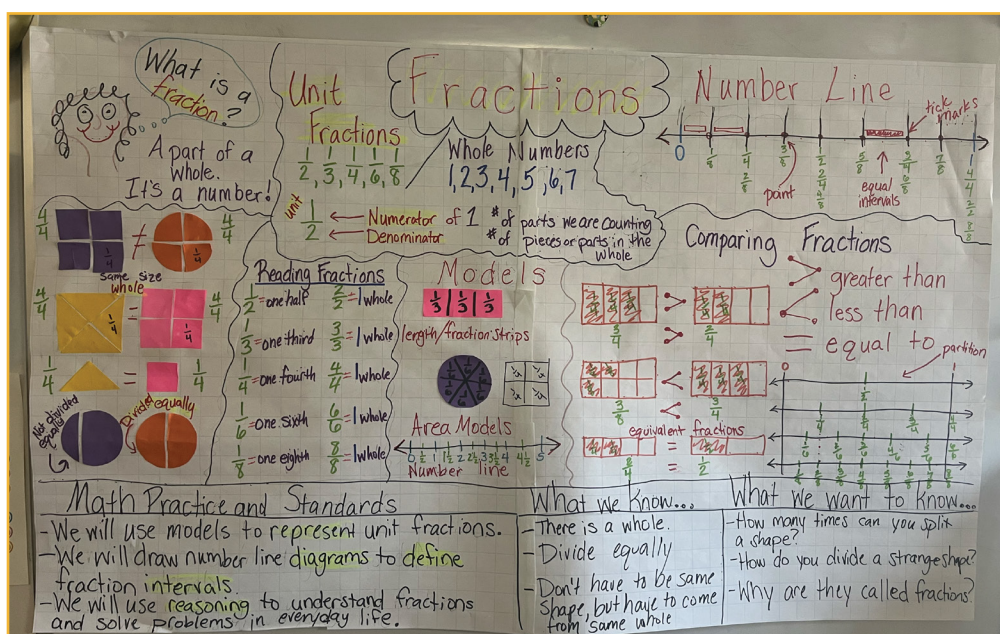 What is a
fraction?
A part of a
whole.
It's a number!
Unit
Fractions
1/2, 1/3, 1/4, 1/6, 1/8
Fractions
Whole Numbers
1,2,3,4,5,6,7
unit
1/2
Numerator of 1 # of parts we are counting
Denominator # of pieces or parts in the
whole
Number Line
tick marks
0 1/8 1/4 3/8 2/4 5/8 3/4 7/8 1
2/8 4/8 6/8 4/4
2/2
8/8
point
equal
intervals
4/4 1/4 ≠ 1/4 4/4
same size
whole
4/4 1/4 = 1/4 4/4
1/4 = 1/4
Not divided
equally
Divided equally
Reading Fractions
1/2 = one half 2/2 = 1 whole
1/3 = one third 3/3 = 1 whole
1/4 = one fourth 4/4 = 1 whole
1/6 = one sixth 6/6 = 1 whole
1/8 = one eighth 8/8 = 1 whole
Models
1/3 1/3 1/3
length/fraction strips
1/6 1/6 1/6 1/6 1/6 1/6
1/4 1/4 1/4 1/4
Area Models
0 1/2 1 1 1/2 2 2 1/2 3 3 1/2 4 4 1/2 5
Number line
Comparing Fractions
> greater than
< less than
= equal to
>
3/4 > 2/4
<
3/8 < 3/4
equivalent fractions
=
2/4 = 1/2
partition
0 1
1/2
Math Practice and Standards
-We will use models to represent unit fractions.
-We will draw number line diagrams to define
fraction intervals.
-We will use reasoning to understand fractions
and solve problems in everyday life.
What we know...
-There is a whole.
-Divide equally
-Don't have to be same
shape, but have to come
from same whole
What we want to know...
-How many times can you split
a shape?
-How do you divide a strange shape?
-Why are they called fractions?